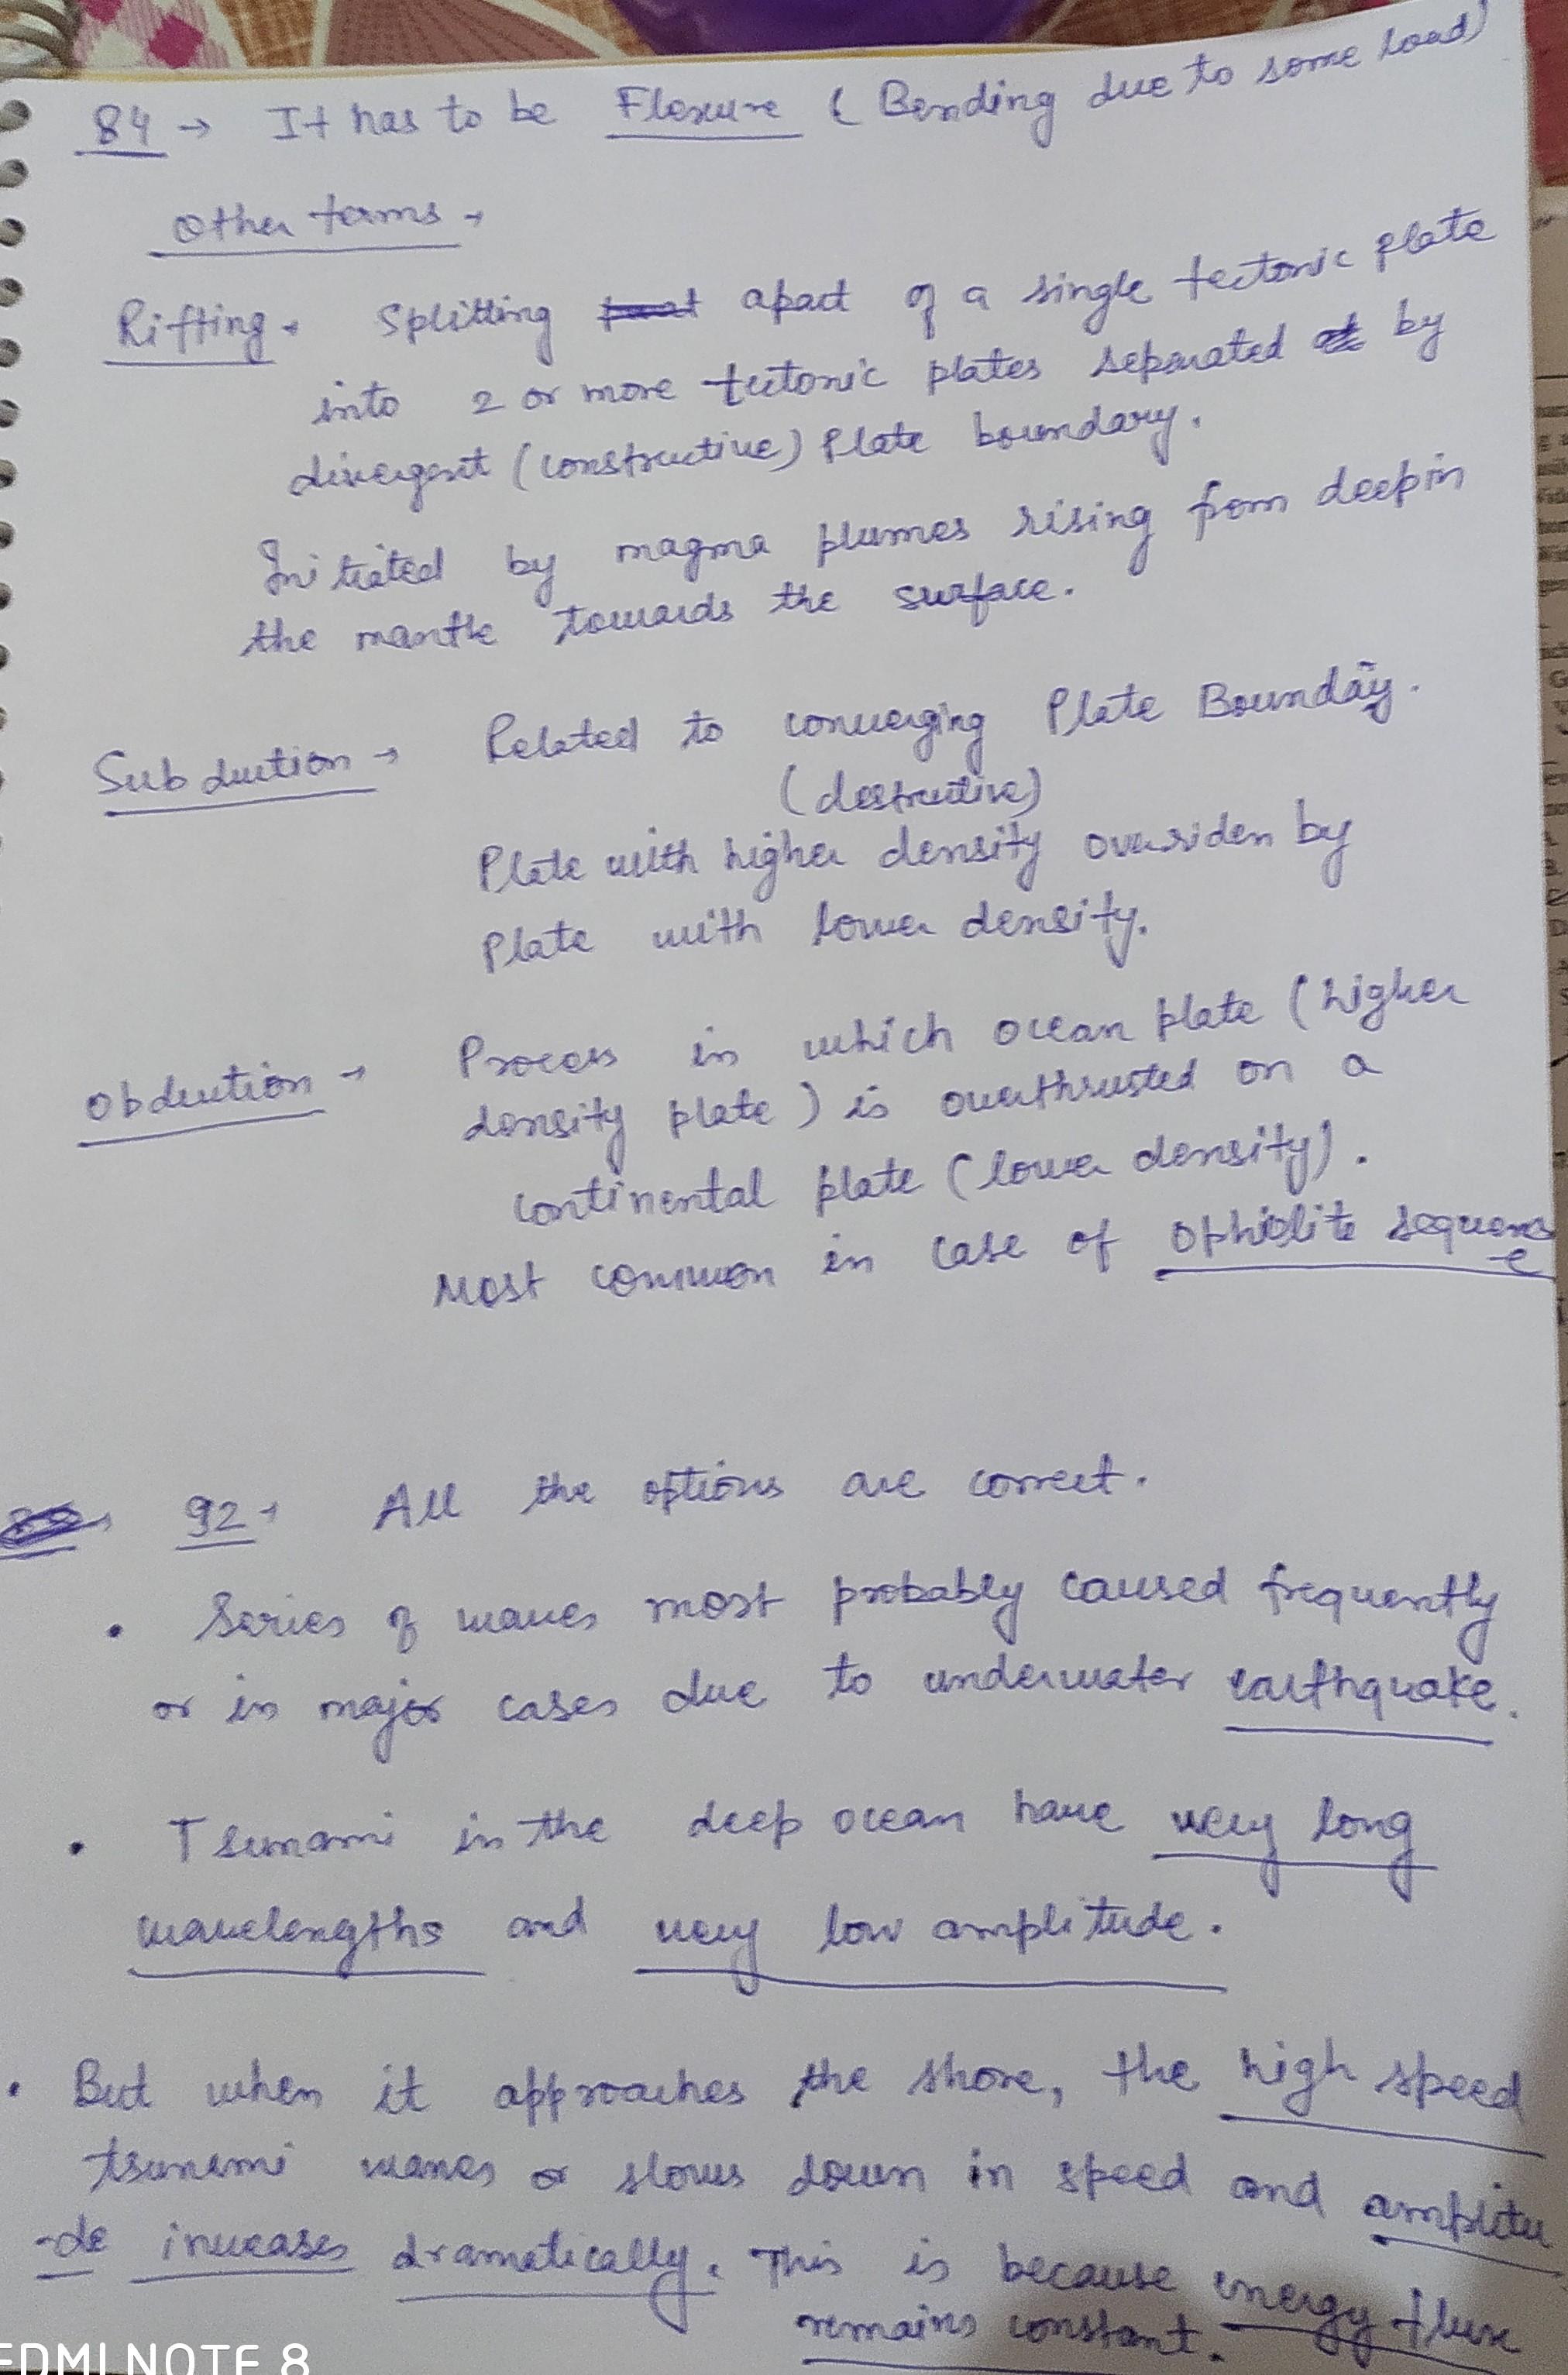 84 → It has to be Flexure ( Bending due to some load)
Other terms →
Rifting → Splitting apart of a single tectonic plate
into 2 or more tectonic plates separated by
divergent (constructive) Plate boundary.
Initiated by magma plumes rising from deep in
the mantle towards the surface.
Subduction → Related to converging Plate Boundary.
(destructive)
Plate with higher density overriden by
Plate with lower density.
Obduction → Process in which ocean plate (higher
density plate) is overthrusted on a
continental plate (lower density).
Most common in case of ophiolite sequence
92 → All the options are correct.
• Series of waves most probably caused frequently
or in major cases due to underwater earthquake.
• Tsunami in the deep ocean have very long
wavelengths and very low amplitude.
• But when it approaches the shore, the high speed
tsunami waves or slows down in speed and amplitu
-de increases dramatically. This is because energy flux
remains constant.
REDMI NOTE 8